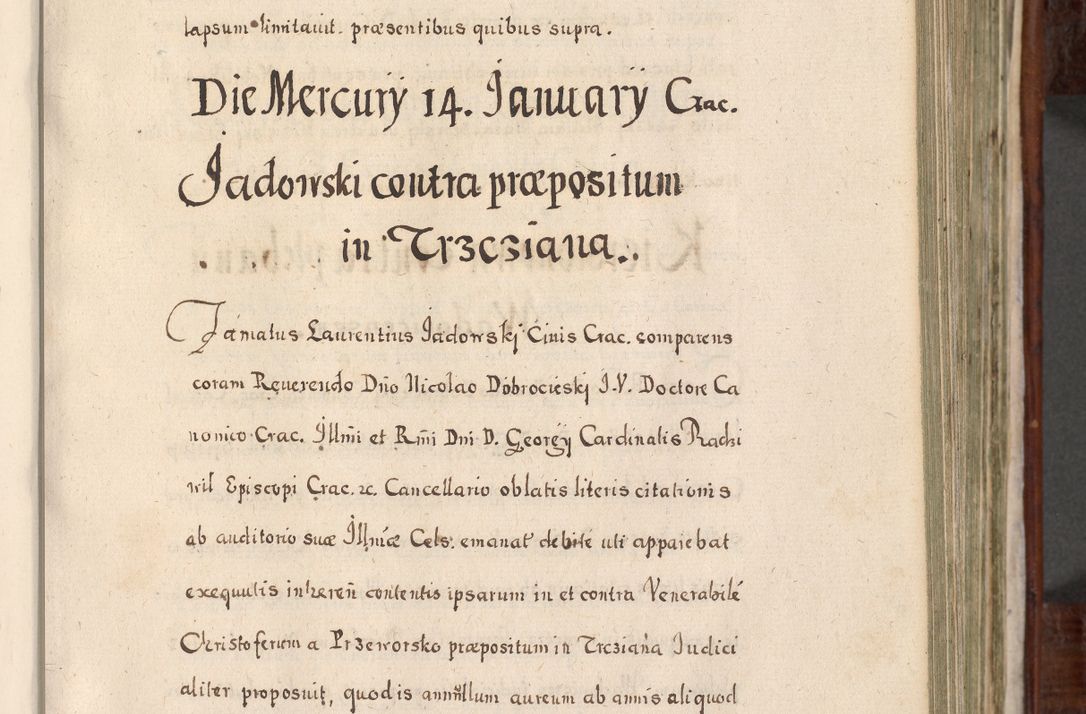 lapsum limitavit. præsentibus quibus supra.
Die Mercurÿ 14. Januarÿ Crac.
Jadowski contra præpositum
in Trzcziana.
Famatus Laurentius Jadowskj Ciuis Crac. comparens
coram Reuerendo Dño Nicolao Dobrocieskj J.V. Doctore Ca
nonico Crac. Jllm̃i et Rm̃i Dni D. Georgÿ Cardinalis Radzi
wil Episcopi Crac. &c. Cancellario oblatis literis citationis
ab auditorio suæ Jllm̃æ Cels. emanat̃ debite uti apparebat
exequutis inhæreñ contentis ipsarum in et contra Venerabilẽ
Christoferum a Przeworsko præpositum in Trcziana Judici
aliter proposuit, quod is annullum aureum ab annis aliquod